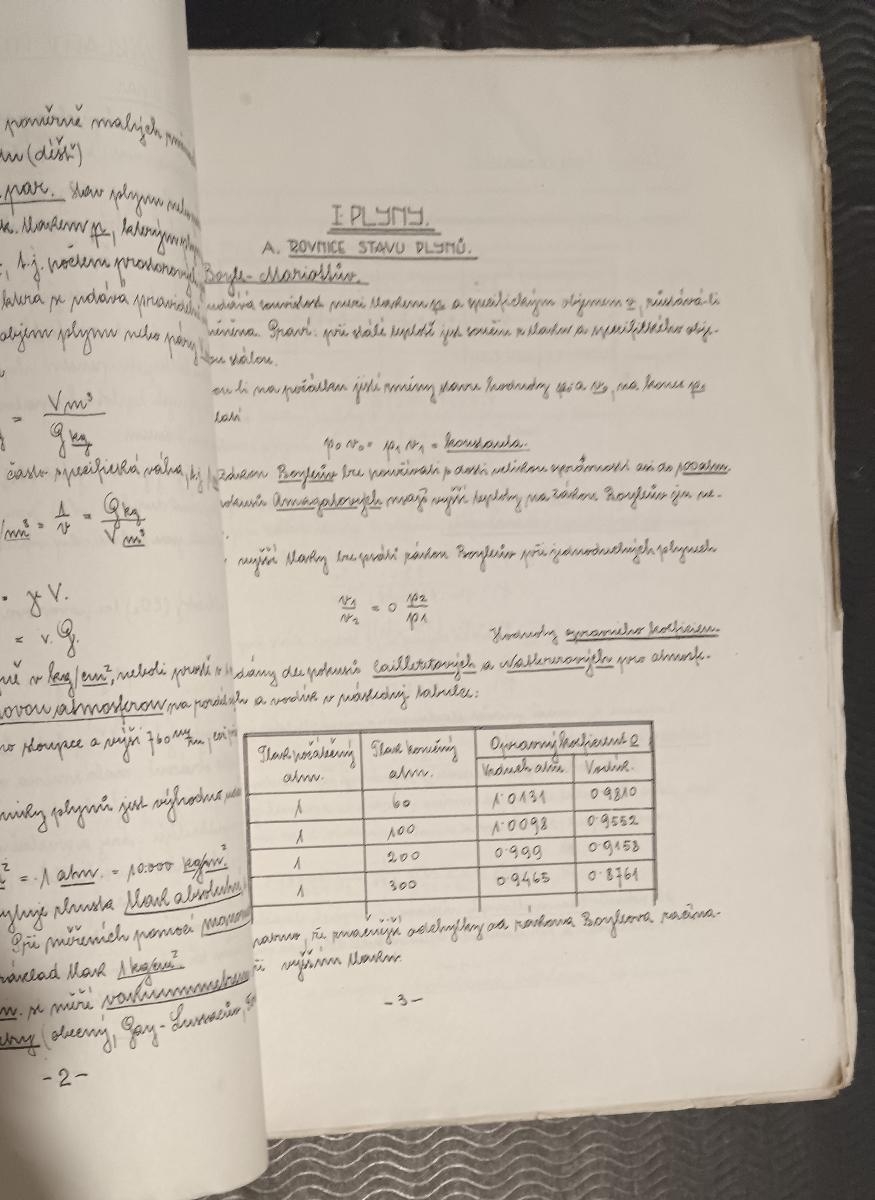 poměrně malých
(déšť)
par. Stav plynu nebo
tlakem p, kterým
t.j. počtem prostorových
která se udává pravidel
objem plynu nebo páry
= V m³ / G kg
často specifická váha, t.j.
/m³ = 1/v = G kg / V m³
= γ V.
= v. G.
v kg/cm², neboli prostě
ovou atmosferou na rozdíl
sloupce a výši 760 m/m
plynů jest výhodno
= 1 atm. = 10.000 kg/m²
zhusta tlak absolutní
Při měřeních pomocí mano
základ tlak 1 kg/cm².
se měří vakuummetrem
(obecný, Gay-Lussacův,
-2-
I. PLYNY.
A. ROVNICE STAVU PLYNŮ.
Boyle-Mariottův.
udává souvislost mezi tlakem p a specifickým objemem v, zůstává-li
měněna. Praví: při stálé teplotě jest součin z tlaku a specifického obje-
stálou.
li na počátku jisté změny stavu hodnoty p₀ a v₀, na konec p₁
latí
p₀ v₀ = p₁ v₁ = konstanta.
zákon Boyleův lze používati s dosti velikou správností asi do
pokusů Amagatových mají vyšší teploty na zákon Boyleův jen ne-
vyšší tlaky lze psáti zákon Boyleův při jednoduchých plynech
v₁/v₂ = o p₂/p₁
Hodnoty opravného koeficien-
dány dle pokusů Cailletetových a Nattererových pro atmosf.
a vodík v následný tabulce:
Tlak počáteční atm. | Tlak konečný atm. | Opravný koeficient o
Vzduch atm. | Vodík.
1 | 60 | 1·0131 | 0·9810
1 | 100 | 1·0098 | 0·9552
1 | 200 | 0·999 | 0·9158
1 | 300 | 0·9465 | 0·8761
patrno, že značnější odchylky od zákona Boyleova začína-
při vyšším tlaku.
-3-